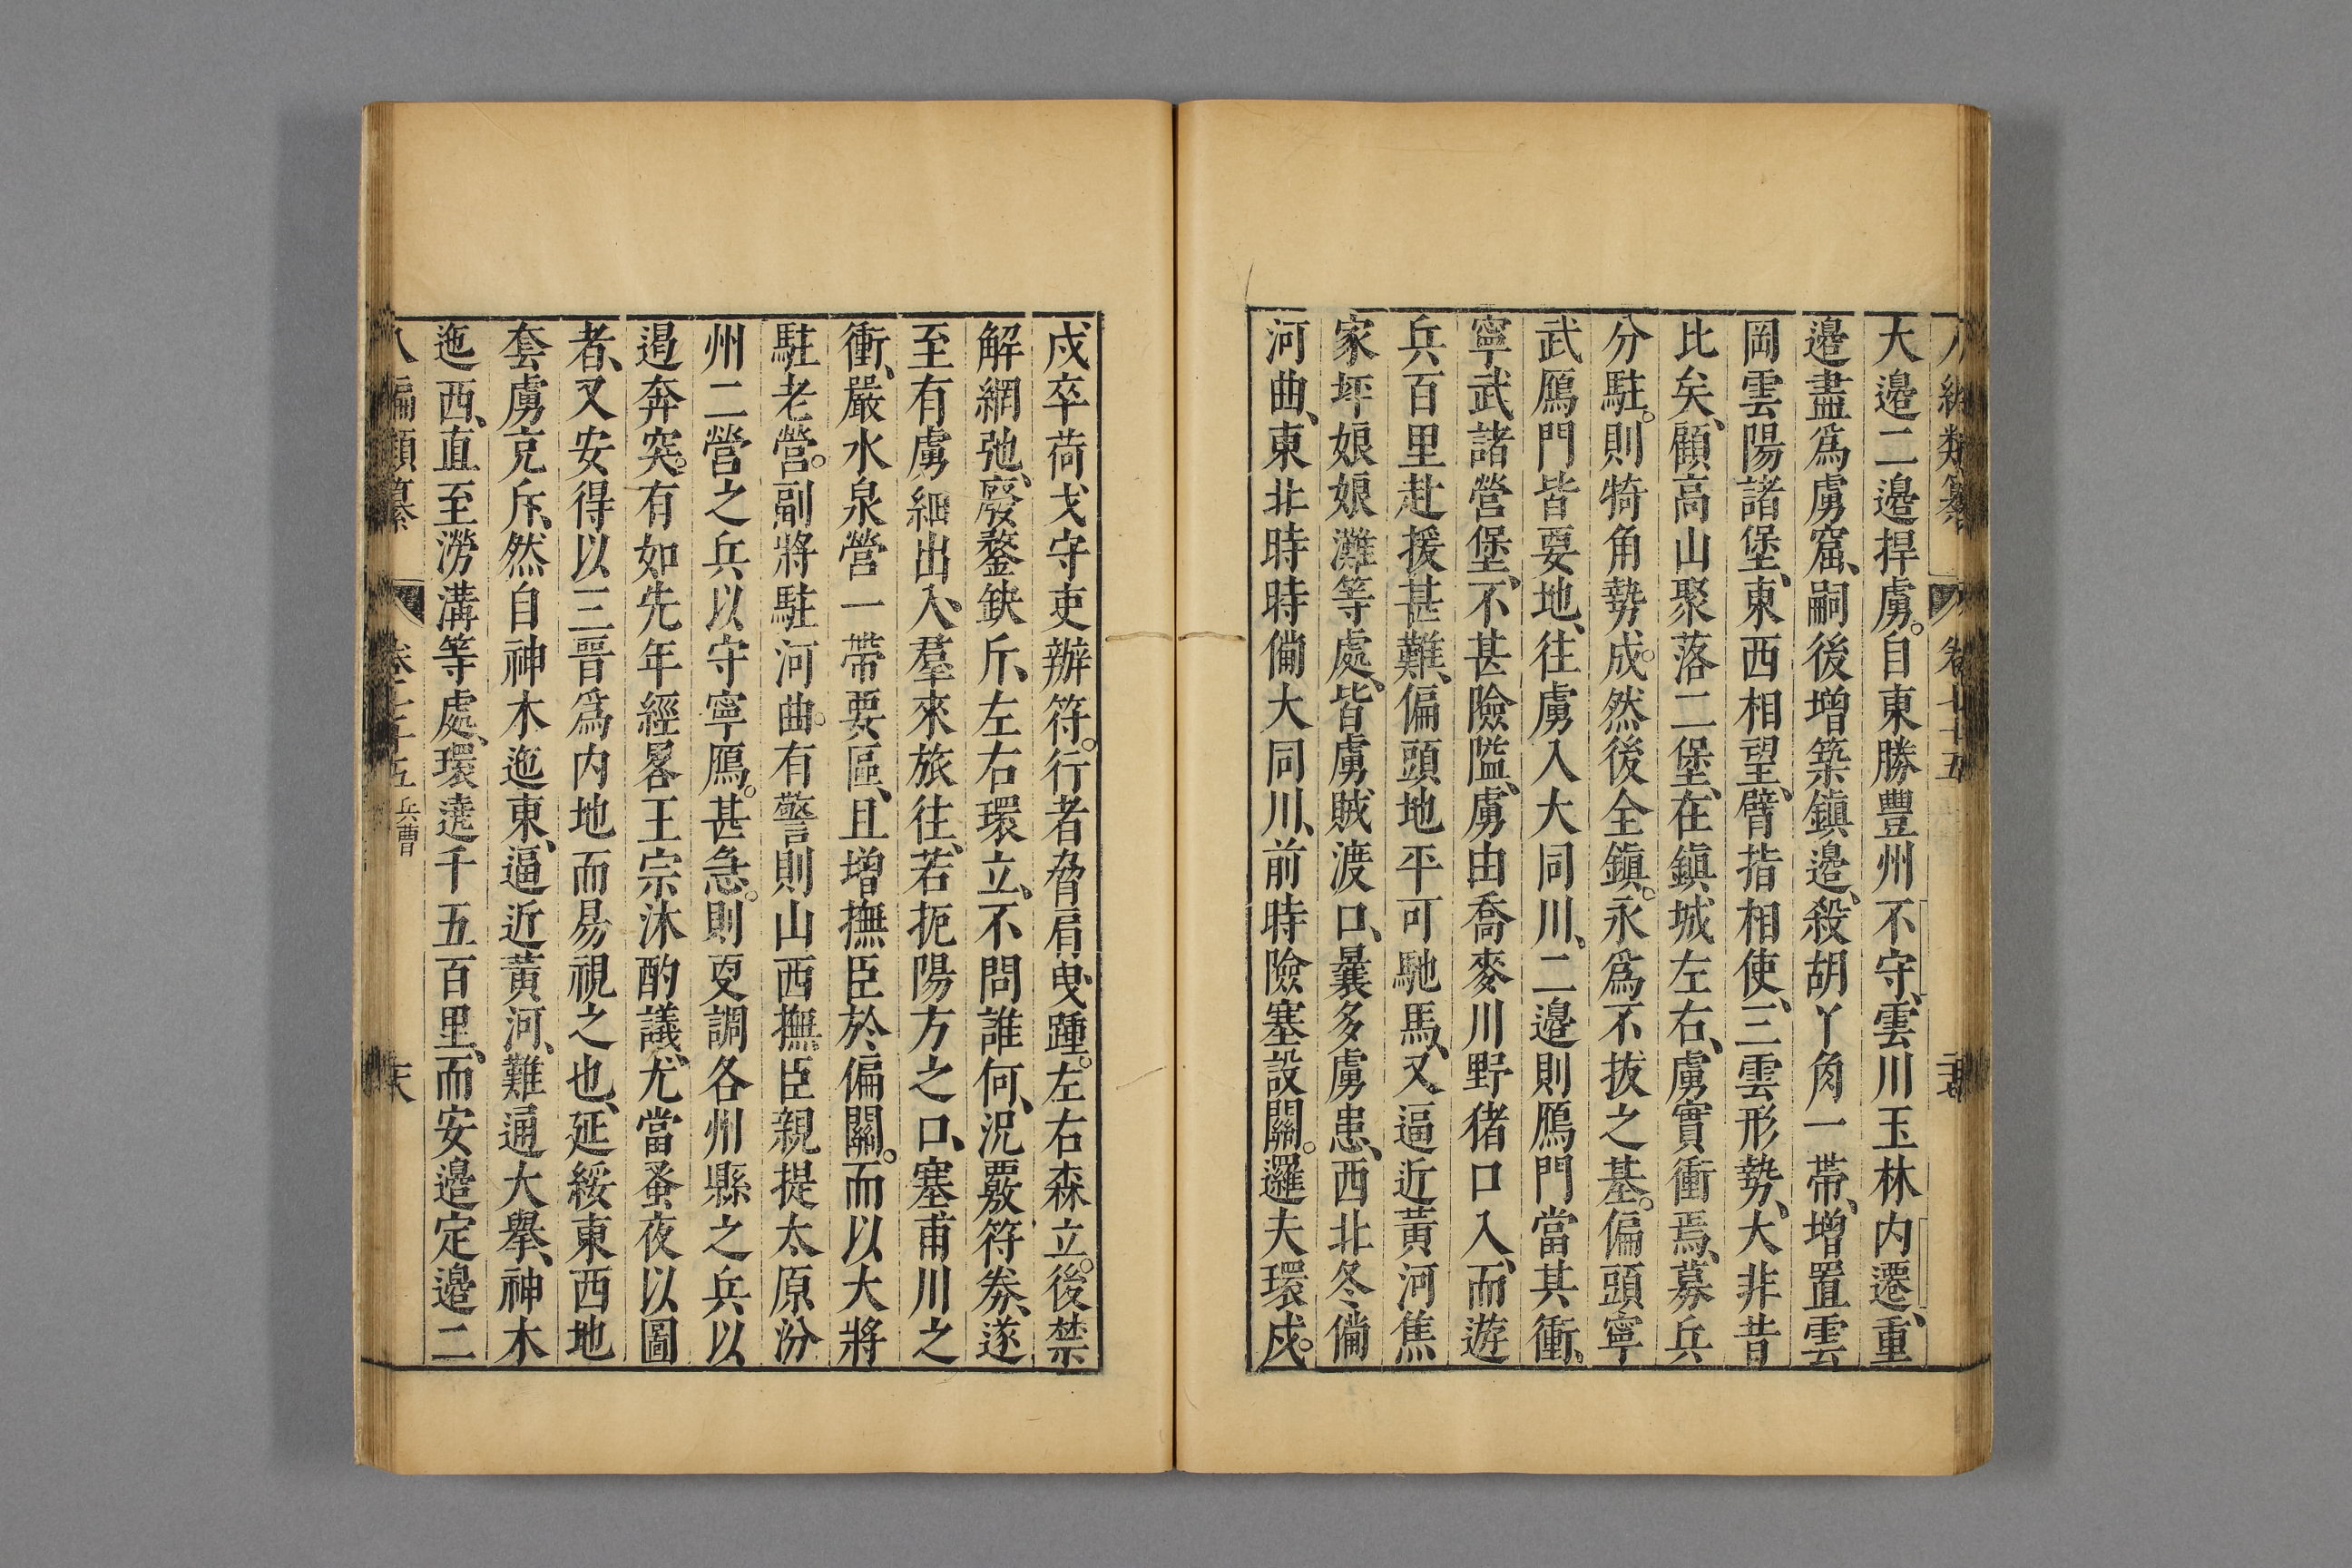 大邉二邉捍虜。自東勝豐州不守、雲川玉林内遷、重
邉盡爲虜窟、嗣後增築鎭邉、殺胡丫角一帶、增置雲
岡雲陽諸堡、東西相望、臂指相使、三雲形勢、大非昔
比矣、顧高山聚落二堡、在鎭城左右、虜實衝焉、募兵
分駐。則犄角勢成。然後全鎭。永爲不拔之基。偏頭寧
武鴈門皆要地、往虜入大同川、二邉則鴈門當其衝、
寧武諸營堡、不甚險隘、虜由喬麥川野猪口入、而遊
兵百里赴援甚難、偏頭地平可馳馬、又逼近黃河焦
家坪娘娘灘等處、皆虜賊渡口、曩多虜患、西北冬備
河曲、東北時時備大同川、前時險塞設關。邏夫環戍。
戍卒荷戈守吏辦符。行者脅肩曳踵。左右森立。後禁
解網弛、廢鍪鈌斤、左右環立、不問誰何、況覈符劵、遂
至有虜細出入、羣來旅往、若扼陽方之口、塞甫川之
衝、嚴水泉營一帶要區、且增撫臣於偏關。而以大將
駐老營。副將駐河曲。有警則山西撫臣親提太原汾
州二營之兵以守寧鴈。甚急。則更調各州縣之兵以
遏奔突。有如先年經畧王宗沐酌議、尤當蚤夜以圖
者、又安得以三晉爲内地而易視之也、延綏東西地
套虜克斥、然自神木迤東、逼近黃河、難通大舉、神木
迤西、直至澇溝等處、環遶千五百里、而安邉定邉二
八編類纂 卷七十五 兵曹